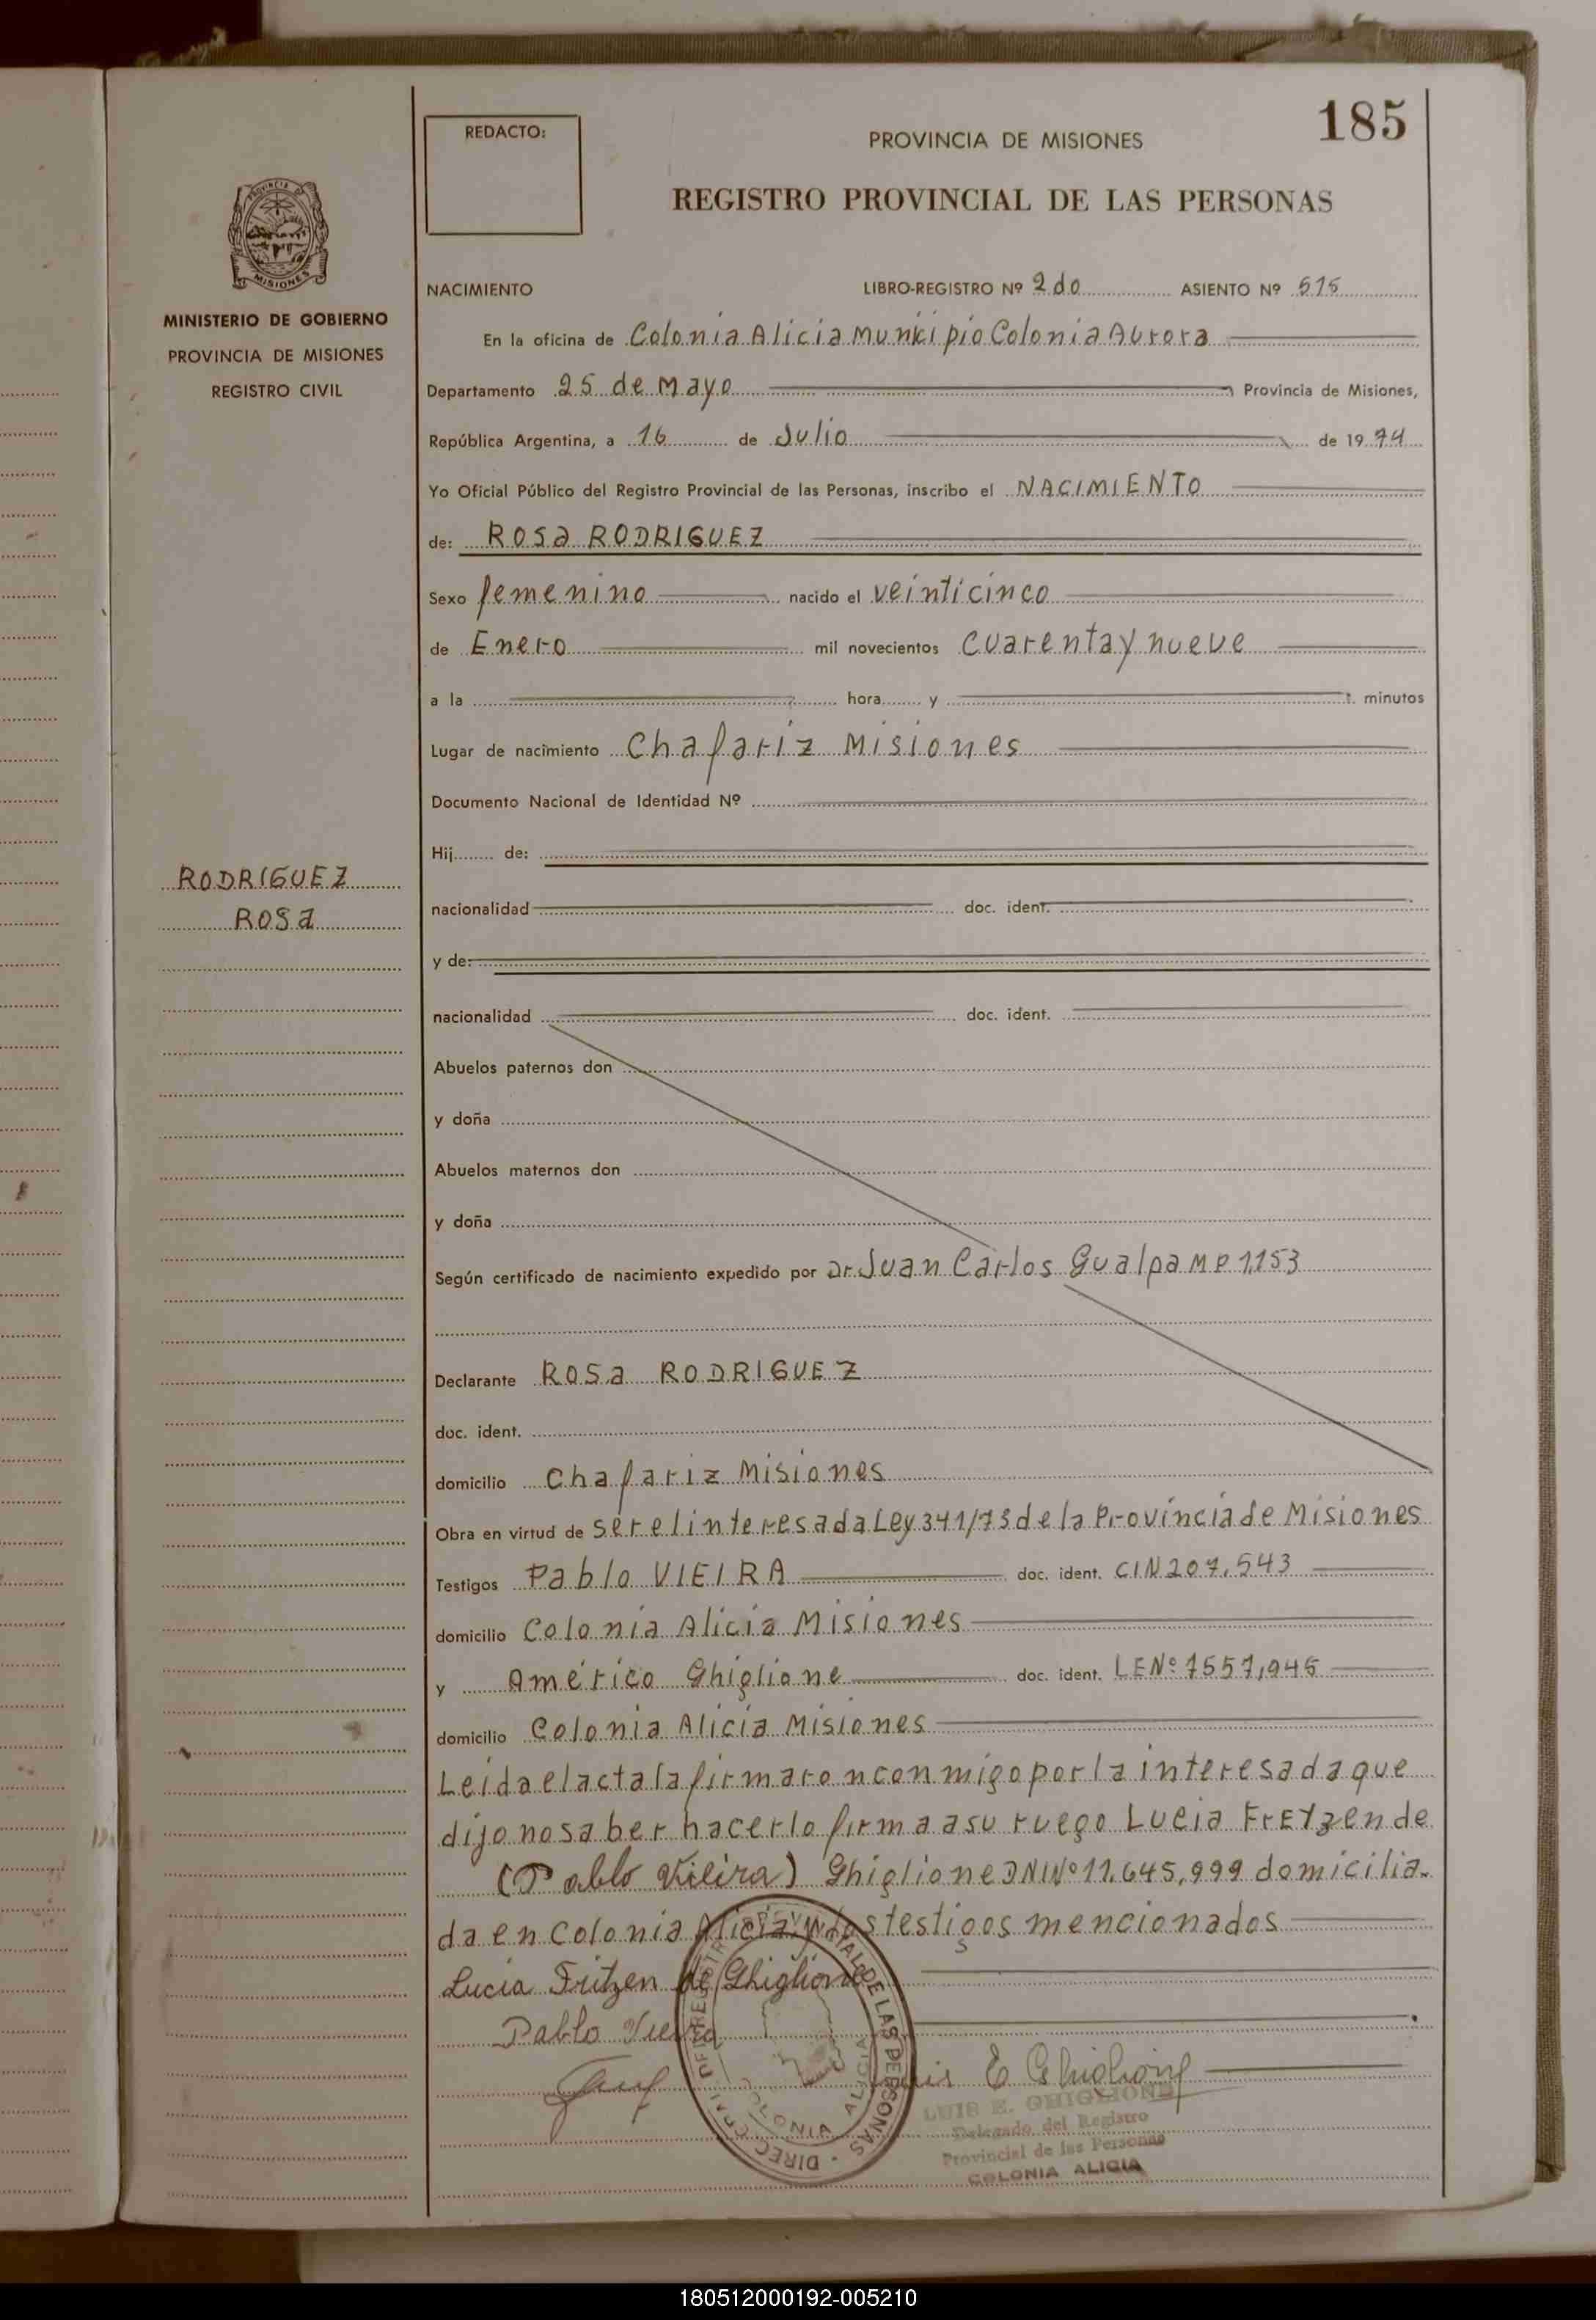 185
REDACTO:
PROVINCIA DE MISIONES
REGISTRO PROVINCIAL DE LAS PERSONAS
PROVINCIA DE
MISIONES
MINISTERIO DE GOBIERNO
PROVINCIA DE MISIONES
REGISTRO CIVIL
NACIMIENTO LIBRO-REGISTRO Nº 2do ASIENTO Nº 515
En la oficina de Colonia Alicia Municipio Colonia Aurora
Departamento 25 de Mayo Provincia de Misiones,
República Argentina, a 16 de Julio de 1974
Yo Oficial Público del Registro Provincial de las Personas, inscribo el NACIMIENTO
de: ROSa RODRIGUEZ
Sexo femenino nacido el veinticinco
de Enero mil novecientos cuarenta y nueve
a la hora y minutos
Lugar de nacimiento Chafariz Misiones
Documento Nacional de Identidad Nº
Hij de:
RODRIGUEZ
ROSa
nacionalidad doc. ident.
y de:
nacionalidad doc. ident.
Abuelos paternos don
y doña
Abuelos maternos don
y doña
Según certificado de nacimiento expedido por Dr. Juan Carlos Gualpa MP 1,153
Declarante ROSa RODRIGUEZ
doc. ident.
domicilio Chafariz Misiones
Obra en virtud de ser el interesada Ley 341/73 de la Provincia de Misiones
Testigos Pablo VIEIRA doc. ident. CIN 207.543
domicilio Colonia Alicia Misiones
y Américo Ghiglione doc. ident. LENº 7557,945
domicilio Colonia Alicia Misiones
Leida el acta la firmaron conmigo por la interesada que
dijo no saber hacerlo firma a su ruego Lucia FrEYzen de
(Pablo Vieira) Ghiglione DNINº 11.645,999 domicilia-
da en Colonia Alicia y los testigos mencionados
Lucia Fritzen de Ghiglione
Pablo Vieira
Luis E Ghiglione
DIRECC. GRAL. DEL REGISTRO PROVINCIAL DE LAS PERSONAS
COLONIA ALICIA
LUIS E. GHIGLIONE
Delegado del Registro
Provincial de las Personas
COLONIA ALICIA
180512000192-005210